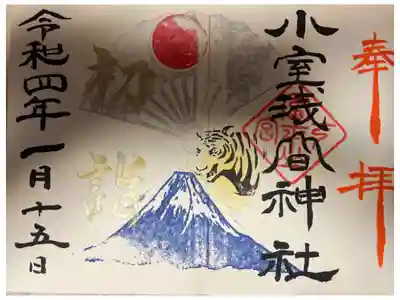 奉拝
小室浅間神社
初詣
令和四年一月十五日